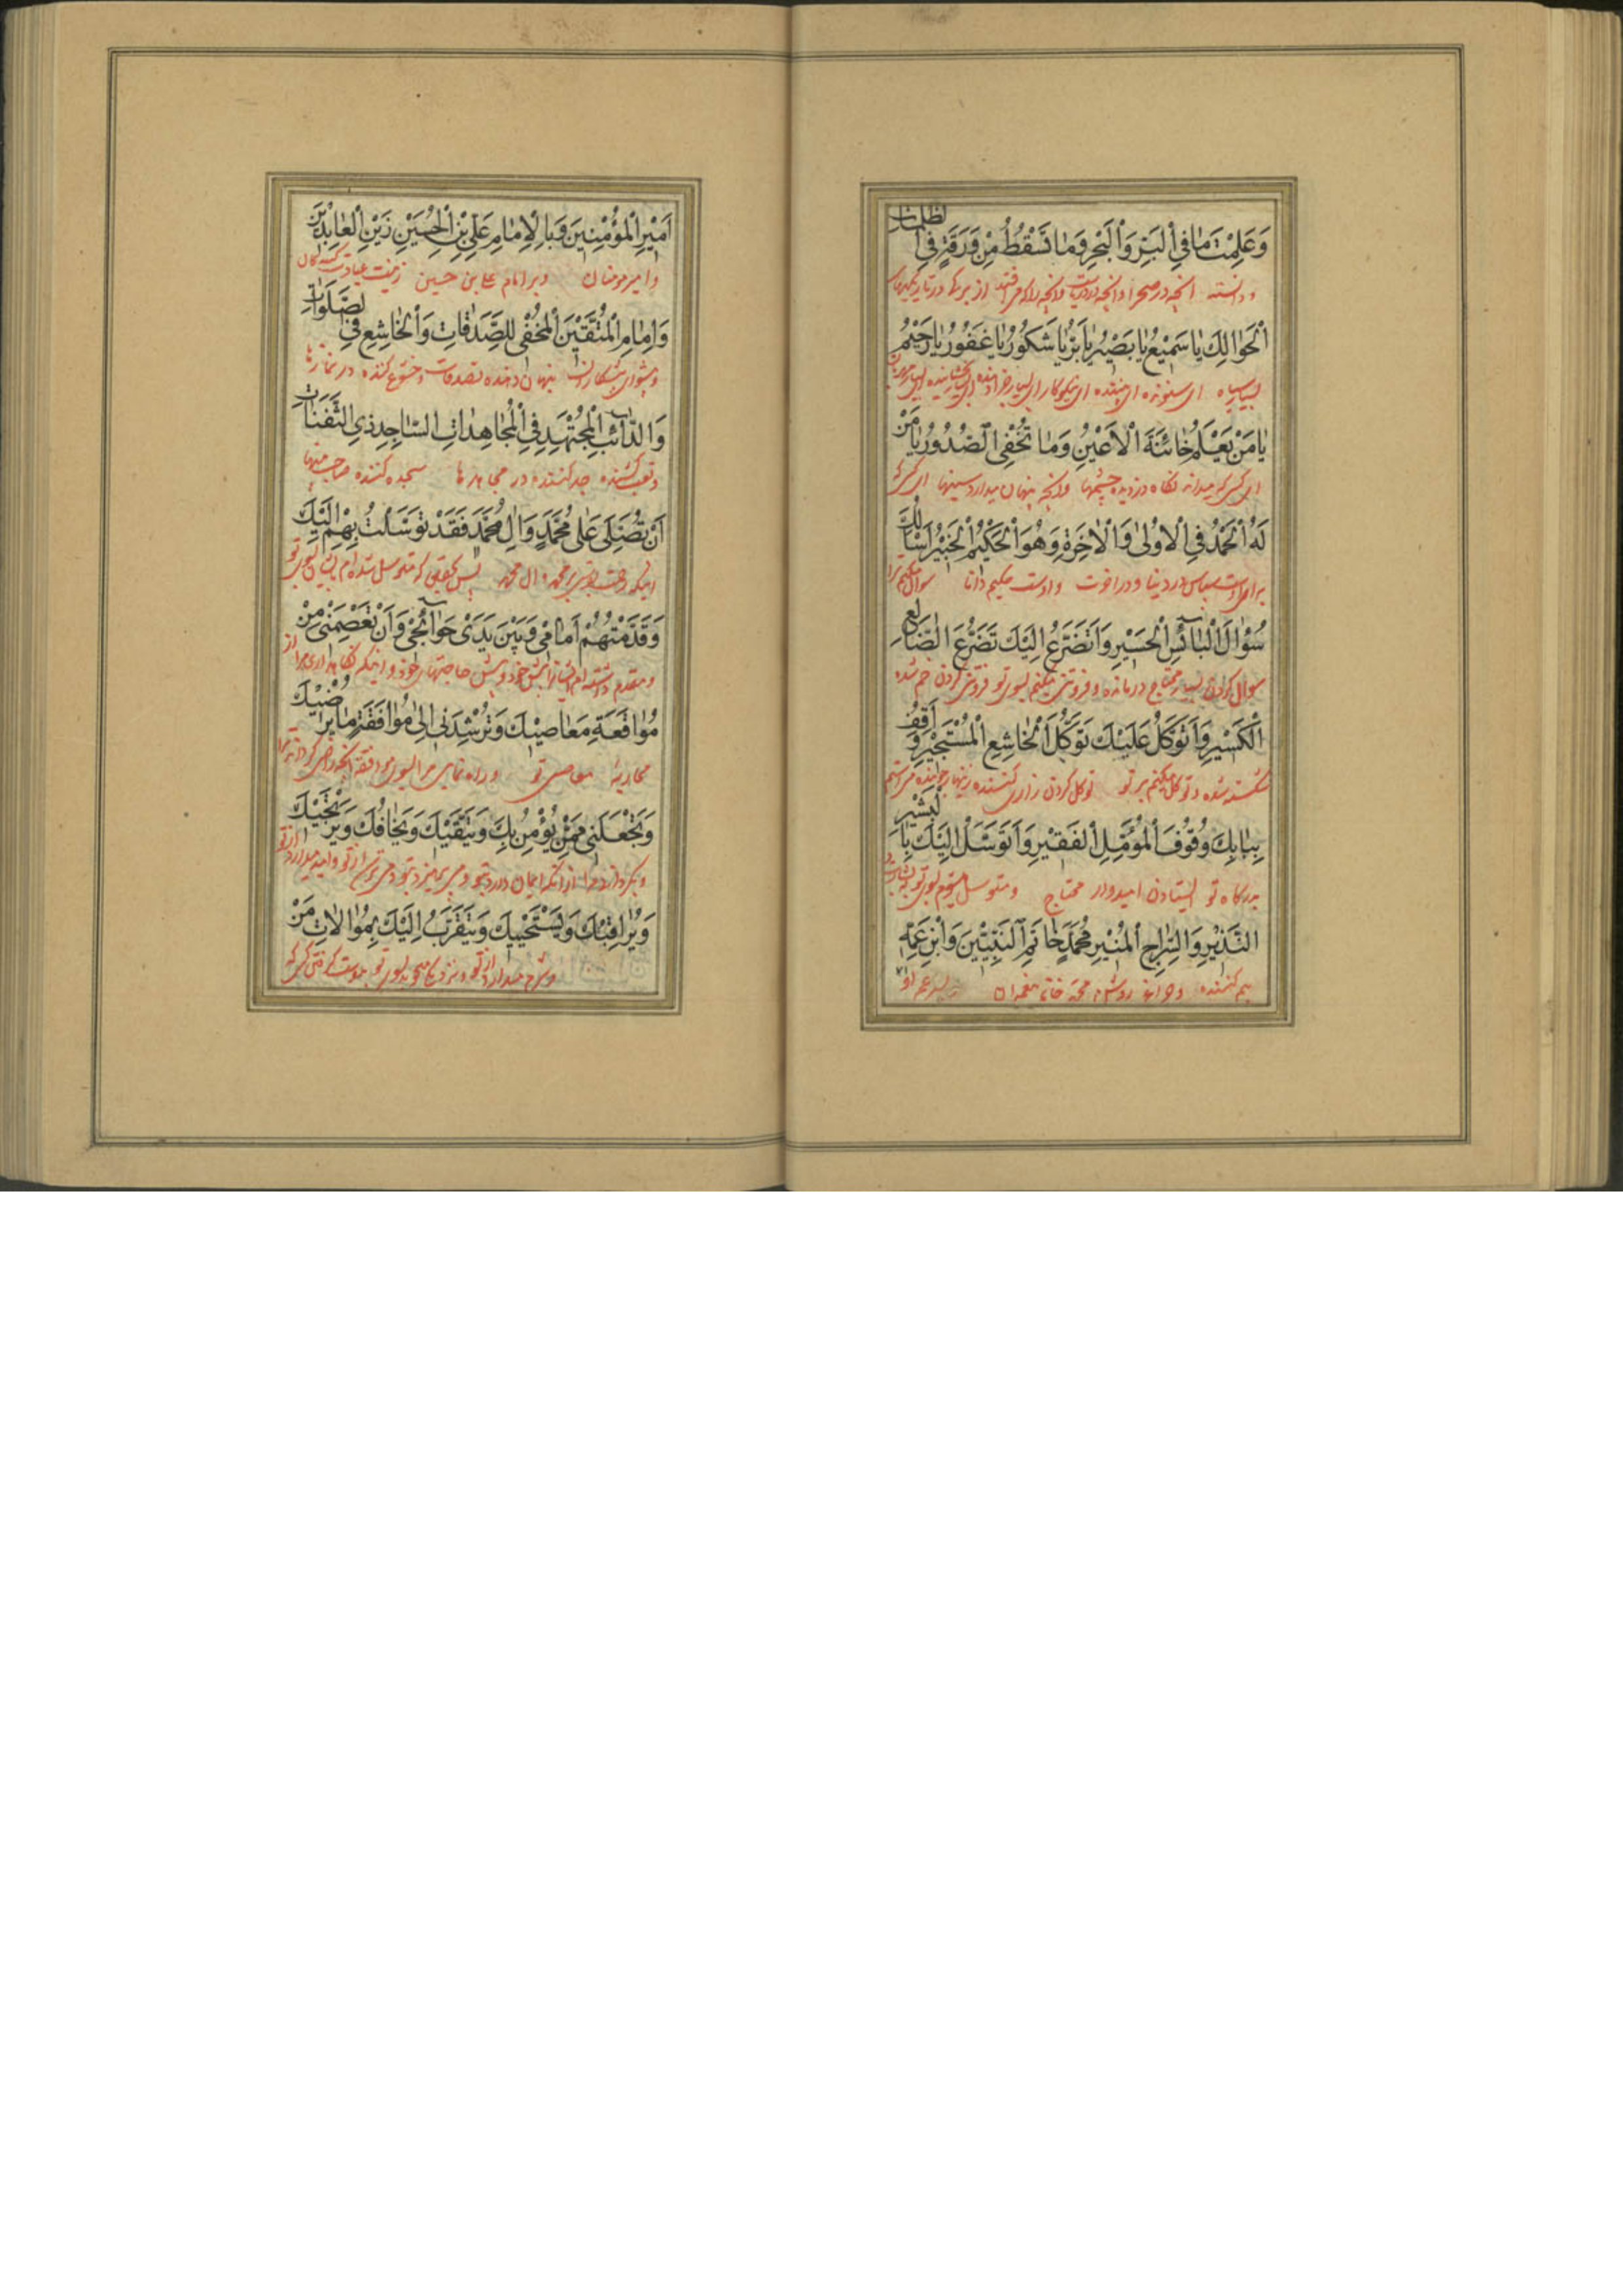 وَعَلِمْتَ مَا فِي الْبَرِّ وَالْبَحْرِ وَمَا تَسْقُطُ مِنْ وَرَقَةٍ فِي الظُّلُمَاتِ
و دانسته آنچه در صحرا و آنچه در دریاست و آنچه از برگها در تاریکیهای
الْحَوَالِكِ يَا سَمِيْعُ يَا بَصِيْرُ يَا بَرُّ يَا شَكُوْرُ يَا غَفُوْرُ يَا رَحِيْمُ
بسیار سیاه ای شنونده ای بیننده ای نیکوکار ای
يَا مَنْ يَعْلَمُ خَائِنَةَ الْاَعْيُنِ وَمَا تُخْفِي الصُّدُوْرُ يَا مَنْ
ای کسی که میداند نگاه دزدیده چشمها و آنچه پنهان میدارد سینها ای کسی که
لَهُ الْحَمْدُ فِي الْاُوْلٰى وَالْاٰخِرَةِ وَهُوَ الْحَكِيْمُ الْخَبِيْرُ اَسْاَلُكَ
برای اوست سپاس در دنیا و در آخرت و اوست حکیم دانا سوال میکنم ترا
سُؤَالَ الْبَائِسِ الْحَسِيْرِ وَاَتَضَرَّعُ اِلَيْكَ تَضَرُّعَ الضَّالِعِ
سوال کردن بسیار محتاج درمانده و فروتنی میکنم بسوی تو فروتنی کردن خم شده
الْكَسِيْرِ وَاَتَوَكَّلُ عَلَيْكَ تَوَكُّلَ الْخَاشِعِ الْمُسْتَجِيْرِ وَاَقِفُ
شکسته شده و توکل میکنم بر تو توکل کردن زاری کننده زینهار خواهنده
بِبَابِكَ وُقُوْفَ الْمُؤَمِّلِ الْفَقِيْرِ وَاَتَوَسَّلُ اِلَيْكَ بِالْبَشِيْرِ
بدرگاه تو ایستادن امیدوار محتاج و متوسل میشوم بسوی تو
النَّذِيْرِ وَالسِّرَاجِ الْمُنِيْرِ مُحَمَّدٍ خَاتَمِ النَّبِيِّيْنَ وَابْنِ عَمِّهِ
بیم کننده و چراغ روشن محمد خاتم پیغمبران و پسر عم او
اَمِيْرِ الْمُؤْمِنِيْنَ وَبِالْاِمَامِ عَلِيِّ بْنِ الْحُسَيْنِ زَيْنِ الْعَابِدِيْنَ
و امیر مومنان و بر امام علی بن حسین زینت عبادت کنندگان
وَاِمَامِ الْمُتَّقِيْنَ الْمُخْفِي لِلصَّدَقَاتِ وَالْخَاشِعِ فِي الصَّلَوَاتِ
و پیشوای پرهیزکاران پنهان دهنده تصدقات و خشوع کننده در نمازها
وَالدَّائِبِ الْمُجْتَهِدِ فِي الْمُجَاهِدَاتِ السَّاجِدِ ذِي الثَّفَنَاتِ
و تعب کشنده جد کننده در مجاهدها سجده کننده صاحب پینها
اَنْ تُصَلِّيَ عَلٰى مُحَمَّدٍ وَاٰلِ مُحَمَّدٍ فَقَدْ تَوَسَّلْتُ بِهِمْ اِلَيْكَ
اینکه رحمت بفرستی بر محمد و آل محمد پس بتحقیق که متوسل شده‌ام بایشان بسوی تو
وَقَدَّمْتُهُمْ اَمَامِيْ وَبَيْنَ يَدَيْ حَوَائِجِيْ وَاَنْ تَعْصِمَنِيْ مِنْ
و مقدم داشته‌ام ایشانرا پیش خود و پیش حاجتهای خود و اینکه نگاهداری مرا از
مُوَاقَعَةِ مَعَاصِيْكَ وَتُرْشِدَنِيْ اِلٰى مُوَافَقَةِ مَا يُرْضِيْكَ
محاربه معاصی تو و راه نمایی مرا بسوی موافقه آنچه راضی گرداند ترا
وَتَجْعَلَنِيْ مِمَّنْ يُؤْمِنُ بِكَ وَيَتَّقِيْكَ وَيَخَافُكَ وَيَرْتَجِيْكَ
و بگردانی مرا از آنکه ایمان دارد بتو و می‌پرهیزد و می‌ترسد از تو و امید میدارد از تو
وَيُرَاقِبُكَ وَيَسْتَحْيِيْكَ وَيَتَقَرَّبُ اِلَيْكَ بِمُوَالَاتِ مَنْ
و شرم میدارد از تو و نزدیکی میجوید بسوی تو بدوست گرفتن کسی که